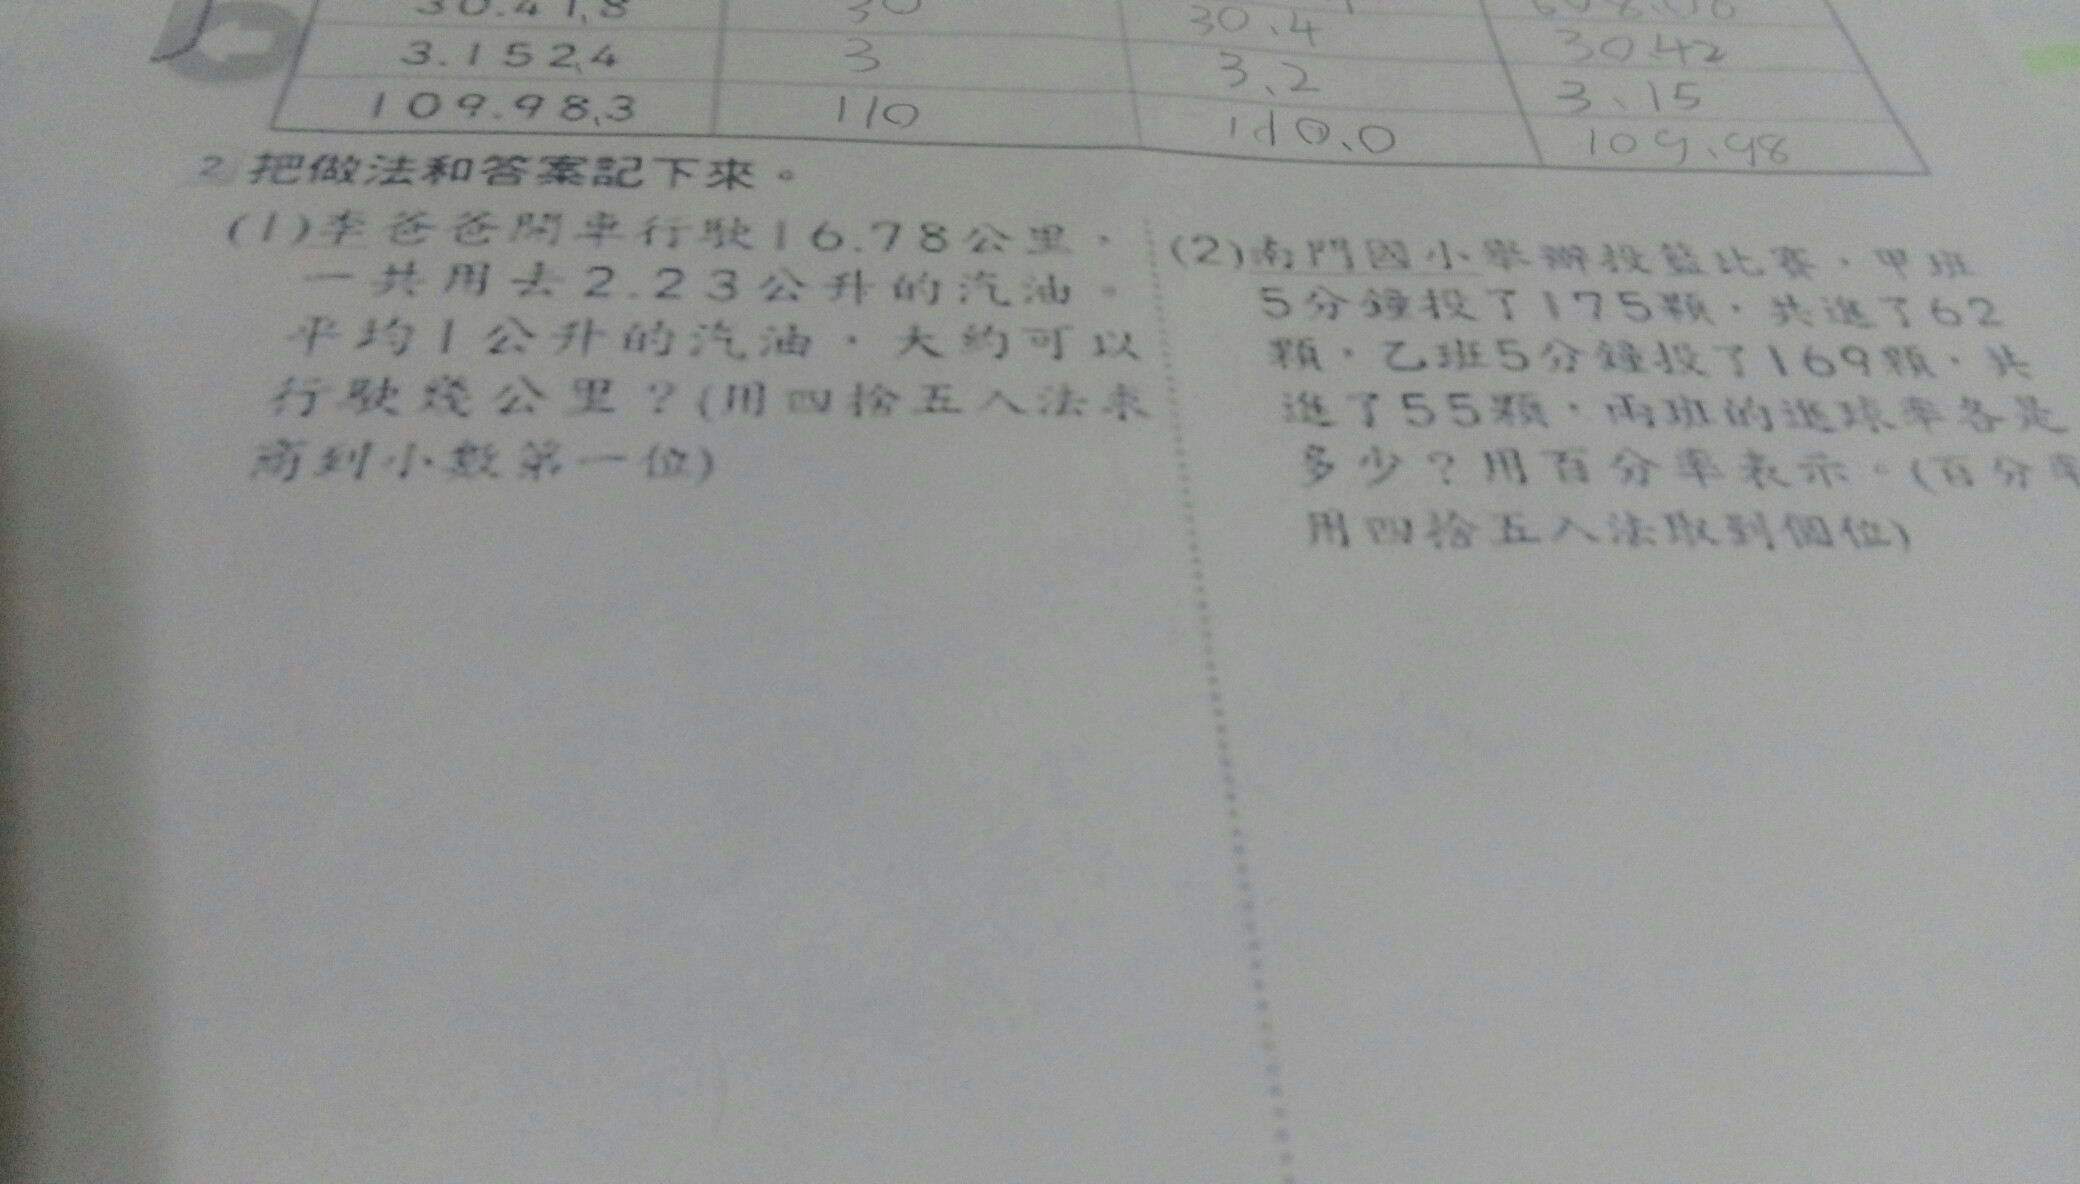 30.41,8 30 30、4
3.152,4 3 3、2 3042
109.98,3 110 110、0 3、15
109、98
2 把做法和答案記下來。
(1)李爸爸開車行駛16.78公里，
一共用去2.23公升的汽油。
平均1公升的汽油，大約可以
行駛幾公里？(用四捨五入法求
商到小數第一位)
(2)南門國小舉辦投籃比賽，甲班
5分鐘投了175顆，共進了62
顆，乙班5分鐘投了169顆，共
進了55顆，兩班的進球率各是
多少？用百分率表示。(百分率
用四捨五入法取到個位)